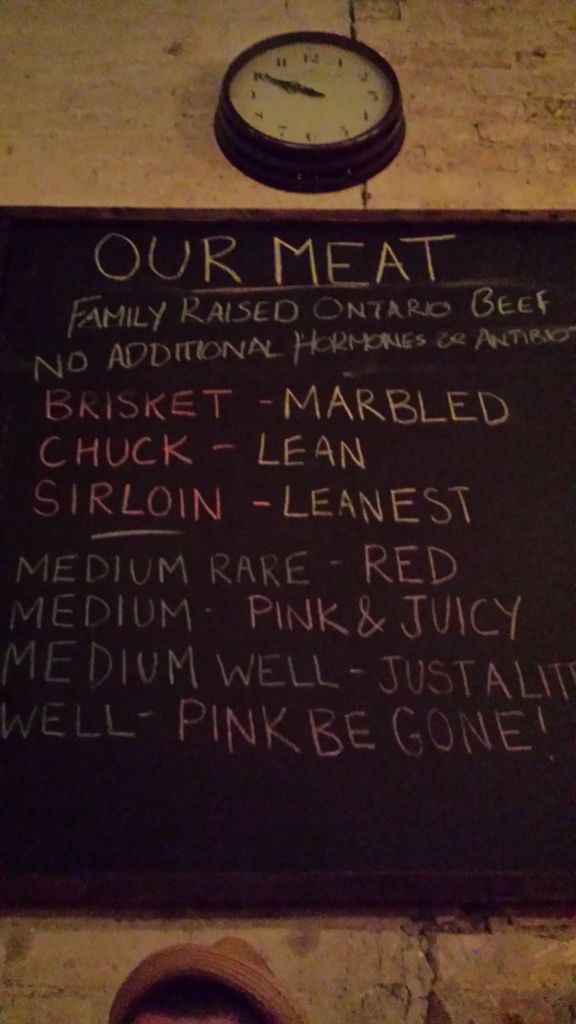 11 12 1
10 2
3
4
7 6 5
OUR MEAT
FAMILY RAISED ONTARIO BEEF
NO ADDITIONAL HORMONES OR ANTIBIOT
BRISKET - MARBLED
CHUCK - LEAN
SIRLOIN - LEANEST
MEDIUM RARE - RED
MEDIUM - PINK & JUICY
MEDIUM WELL - JUST A LITT
WELL - PINK BE GONE!